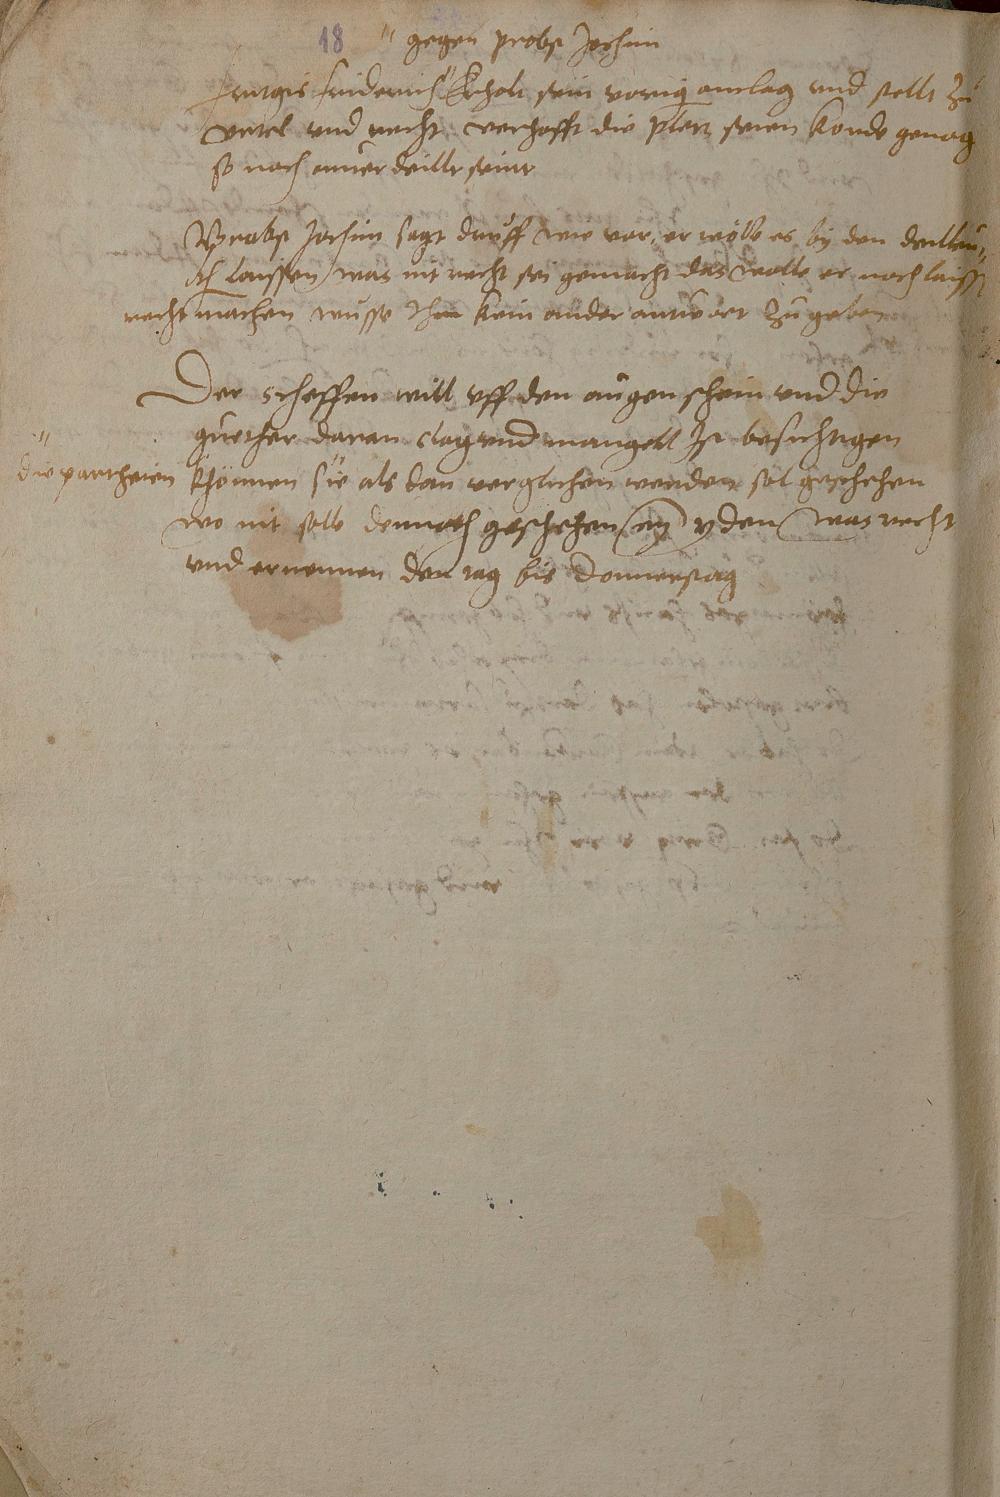 18 " gegen probst Jochim
friderich" Erholt sein vorig anclag und stelt zu
urtel und recht verhofft die pletz seien Konde genog
so noch unuerdeillt seint
Probst Jochim sagt druff wie vor, er wölle es by den deillun"
laussen was nit recht sei gemacht das wolle er noch laissen
recht machen wusste Ihm kein ander antwort zu geben
Der scheffen will uff den augenschein und die
guether daran clag und mangell Ist besichtigen
" die partheien Khönnen sie als dan verglichen werden sol geschehen
wo nit solle dennoch geschehen yden was recht
und ernennen den tag bis Donnerstag